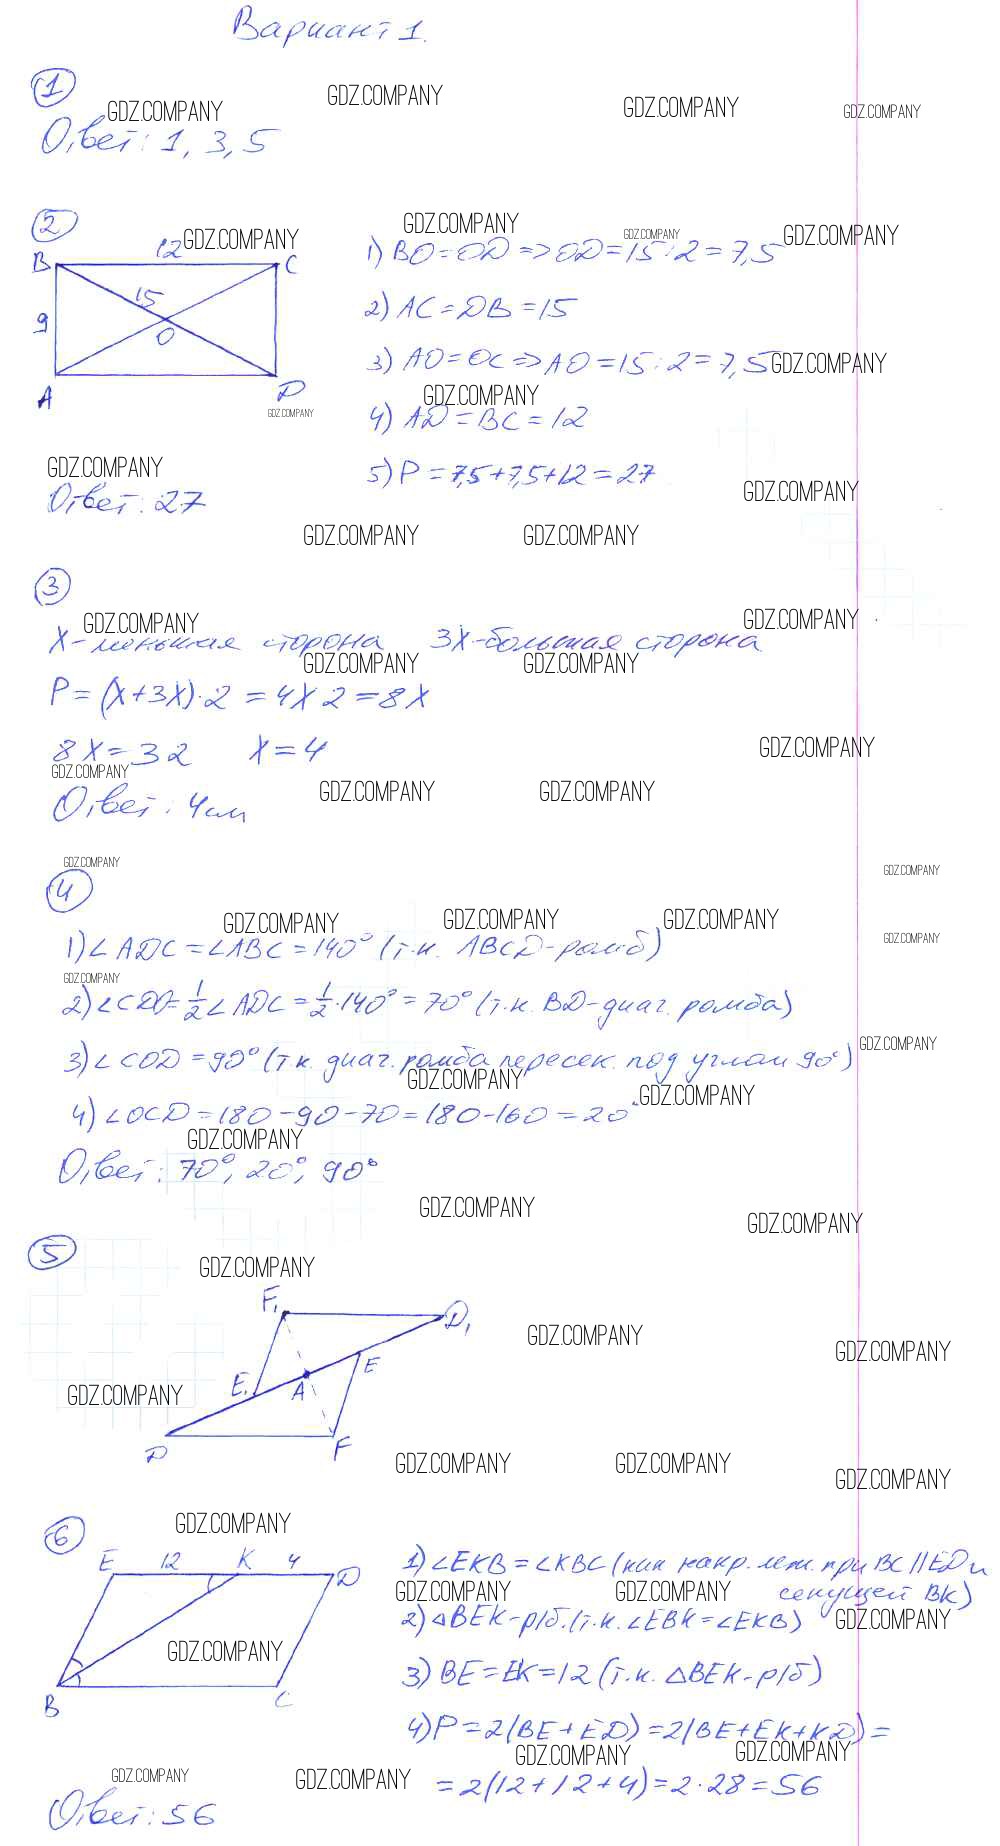 Вариант 1.
1
GDZ.COMPANY GDZ.COMPANY GDZ.COMPANY GDZ.COMPANY
Ответ: 1, 3, 5
2
GDZ.COMPANY GDZ.COMPANY GDZ.COMPANY GDZ.COMPANY
B 12 C
15
9
O
A D
1) BO = OD => OD = 15 : 2 = 7,5
2) AC = DB = 15
3) AO = OC => AO = 15 : 2 = 7,5 GDZ.COMPANY
GDZ.COMPANY GDZ.COMPANY
4) AD = BC = 12
5) P = 7,5 + 7,5 + 12 = 27
GDZ.COMPANY GDZ.COMPANY
Ответ: 27
GDZ.COMPANY GDZ.COMPANY
3
GDZ.COMPANY GDZ.COMPANY
X - меньшая сторона 3X - большая сторона
GDZ.COMPANY GDZ.COMPANY
P = (X + 3X) · 2 = 4X 2 = 8X
8X = 32 X = 4
GDZ.COMPANY
GDZ.COMPANY GDZ.COMPANY GDZ.COMPANY
Ответ: 4 см
GDZ.COMPANY GDZ.COMPANY
4
GDZ.COMPANY GDZ.COMPANY GDZ.COMPANY GDZ.COMPANY
1) ∠ADC = ∠ABC = 140° (т.к. ABCD - ромб)
GDZ.COMPANY
2) ∠CDO = 1/2 ∠ADC = 1/2 · 140° = 70° (т.к. BD - диаг. ромба)
3) ∠COD = 90° (т.к. диаг. ромба пересек. под углом 90°) GDZ.COMPANY
GDZ.COMPANY GDZ.COMPANY
4) ∠OCD = 180 - 90 - 70 = 180 - 160 = 20°
GDZ.COMPANY
Ответ: 70°, 20°, 90°
GDZ.COMPANY GDZ.COMPANY
5
GDZ.COMPANY
F1 D1
GDZ.COMPANY GDZ.COMPANY
E1 A E
GDZ.COMPANY
D F
GDZ.COMPANY GDZ.COMPANY GDZ.COMPANY
6
GDZ.COMPANY
E 12 K 4 D
B C
1) ∠EKB = ∠KBC (как накр. леж. при BC || ED и
секущей BK)
GDZ.COMPANY GDZ.COMPANY GDZ.COMPANY
2) △BEK - р/б. (т.к. ∠EBK = ∠EKB)
GDZ.COMPANY
3) BE = EK = 12 (т.к. △BEK - р/б)
4) P = 2(BE + ED) = 2(BE + EK + KD) =
GDZ.COMPANY GDZ.COMPANY
= 2(12 + 12 + 4) = 2 · 28 = 56
GDZ.COMPANY GDZ.COMPANY
Ответ: 56